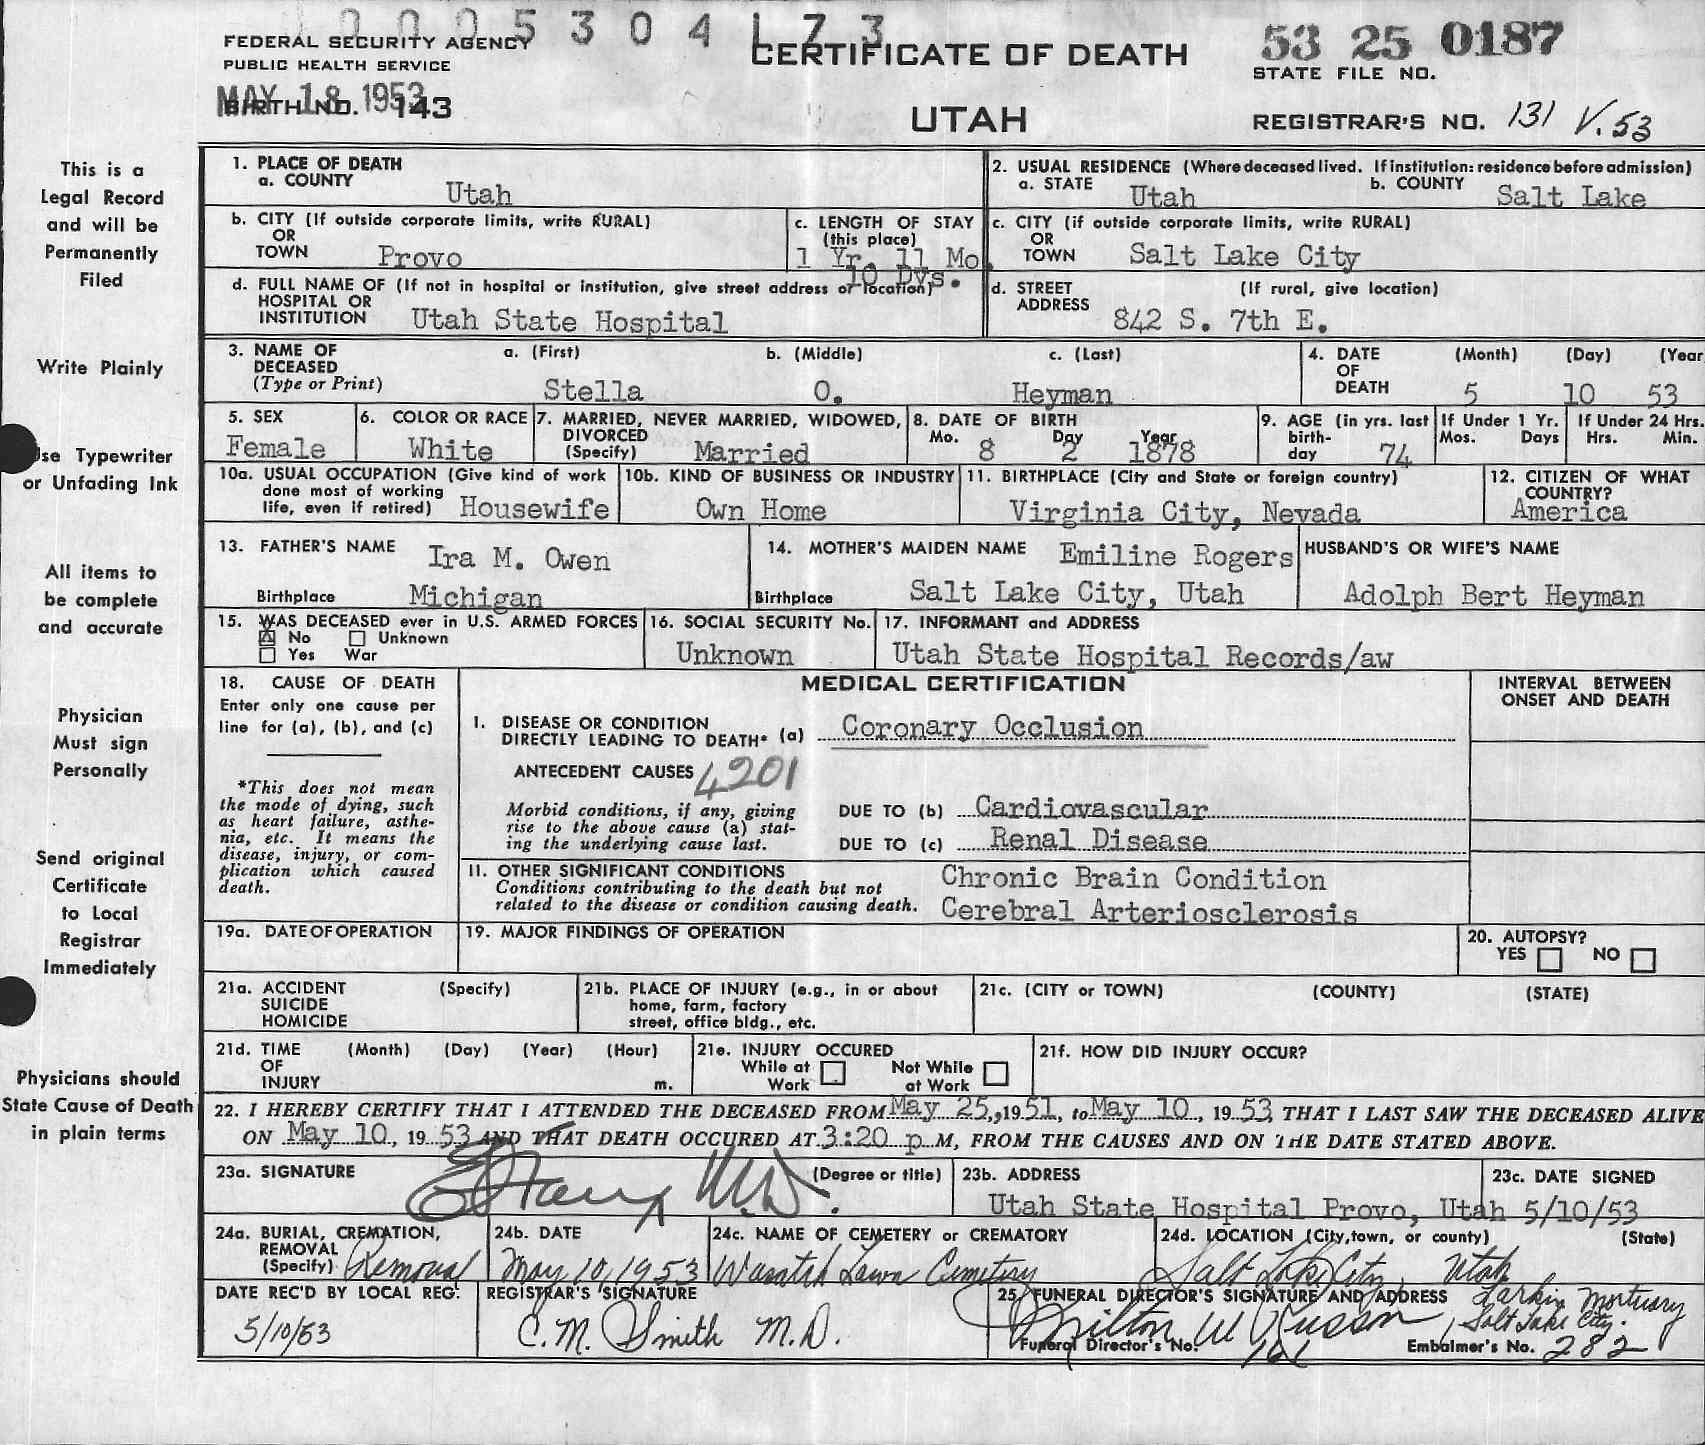 1 0 0 0 5 3 0 4 1 7 3
FEDERAL SECURITY AGENCY
PUBLIC HEALTH SERVICE
MAY 18 1953
BIRTH NO. 143
CERTIFICATE OF DEATH
UTAH
53 25 0187
STATE FILE NO.
REGISTRAR'S NO. 131 V.53
This is a
Legal Record
and will be
Permanently
Filed
Write Plainly
Use Typewriter
or Unfading Ink
All items to
be complete
and accurate
Physician
Must sign
Personally
Send original
Certificate
to Local
Registrar
Immediately
Physicians should
State Cause of Death
in plain terms
1. PLACE OF DEATH
a. COUNTY Utah
2. USUAL RESIDENCE (Where deceased lived. If institution: residence before admission)
a. STATE Utah b. COUNTY Salt Lake
b. CITY (If outside corporate limits, write RURAL)
OR
TOWN Provo
c. LENGTH OF STAY
(this place)
1 Yr. 11 Mo.
10 Dys.
c. CITY (if outside corporate limits, write RURAL)
OR
TOWN Salt Lake City
d. FULL NAME OF (If not in hospital or institution, give street address or location)
HOSPITAL OR
INSTITUTION Utah State Hospital
d. STREET (If rural, give location)
ADDRESS 842 S. 7th E.
3. NAME OF DECEASED
(Type or Print)
a. (First) b. (Middle) c. (Last)
Stella O. Heyman
4. DATE OF DEATH (Month) (Day) (Year
5 10 53
5. SEX
Female
6. COLOR OR RACE
White
7. MARRIED, NEVER MARRIED, WIDOWED,
DIVORCED
(Specify) Married
8. DATE OF BIRTH
Mo. 8 Day 2 Year 1878
9. AGE (in yrs. last
birth-
day 74
If Under 1 Yr.
Mos. Days
If Under 24 Hrs.
Hrs. Min.
10a. USUAL OCCUPATION (Give kind of work
done most of working
life, even if retired) Housewife
10b. KIND OF BUSINESS OR INDUSTRY
Own Home
11. BIRTHPLACE (City and State or foreign country)
Virginia City, Nevada
12. CITIZEN OF WHAT
COUNTRY?
America
13. FATHER'S NAME Ira M. Owen
Birthplace Michigan
14. MOTHER'S MAIDEN NAME Emiline Rogers
Birthplace Salt Lake City, Utah
HUSBAND'S OR WIFE'S NAME
Adolph Bert Heyman
15. WAS DECEASED ever in U.S. ARMED FORCES
X No Unknown
Yes War
16. SOCIAL SECURITY No.
Unknown
17. INFORMANT and ADDRESS
Utah State Hospital Records/aw
18. CAUSE OF DEATH
Enter only one cause per
line for (a), (b), and (c)
*This does not mean
the mode of dying, such
as heart failure, asthe-
nia, etc. It means the
disease, injury, or com-
plication which caused
death.
MEDICAL CERTIFICATION
I. DISEASE OR CONDITION
DIRECTLY LEADING TO DEATH* (a) Coronary Occlusion
ANTECEDENT CAUSES 4201
Morbid conditions, if any, giving
rise to the above cause (a) stat-
ing the underlying cause last.
DUE TO (b) Cardiovascular
DUE TO (c) Renal Disease
II. OTHER SIGNIFICANT CONDITIONS
Conditions contributing to the death but not
related to the disease or condition causing death.
Chronic Brain Condition
Cerebral Arteriosclerosis
INTERVAL BETWEEN
ONSET AND DEATH
19a. DATE OF OPERATION
19. MAJOR FINDINGS OF OPERATION
20. AUTOPSY?
YES NO
21a. ACCIDENT (Specify)
SUICIDE
HOMICIDE
21b. PLACE OF INJURY (e.g., in or about
home, farm, factory
street, office bldg., etc.
21c. (CITY or TOWN) (COUNTY) (STATE)
21d. TIME (Month) (Day) (Year) (Hour)
OF
INJURY m.
21e. INJURY OCCURED
While at Work
Not While at Work
21f. HOW DID INJURY OCCUR?
22. I HEREBY CERTIFY THAT I ATTENDED THE DECEASED FROM May 25, 1951, to May 10, 1953, THAT I LAST SAW THE DECEASED ALIVE
ON May 10, 1953 AND THAT DEATH OCCURED AT 3:20 p M, FROM THE CAUSES AND ON THE DATE STATED ABOVE.
23a. SIGNATURE (Degree or title)
M.D.
23b. ADDRESS
Utah State Hospital Provo, Utah
23c. DATE SIGNED
5/10/53
24a. BURIAL, CREMATION,
REMOVAL
(Specify) Removal
24b. DATE
May 10, 1953
24c. NAME OF CEMETERY or CREMATORY
Wasatch Lawn Cemetery
24d. LOCATION (City, town, or county) (State)
Salt Lake City, Utah
DATE REC'D BY LOCAL REG.
5/10/53
REGISTRAR'S SIGNATURE
C. M. Smith M.D.
25. FUNERAL DIRECTOR'S SIGNATURE AND ADDRESS
Milton W Russon
Larkin Mortuary
Salt Lake City.
Funeral Director's No. 161
Embalmer's No. 282